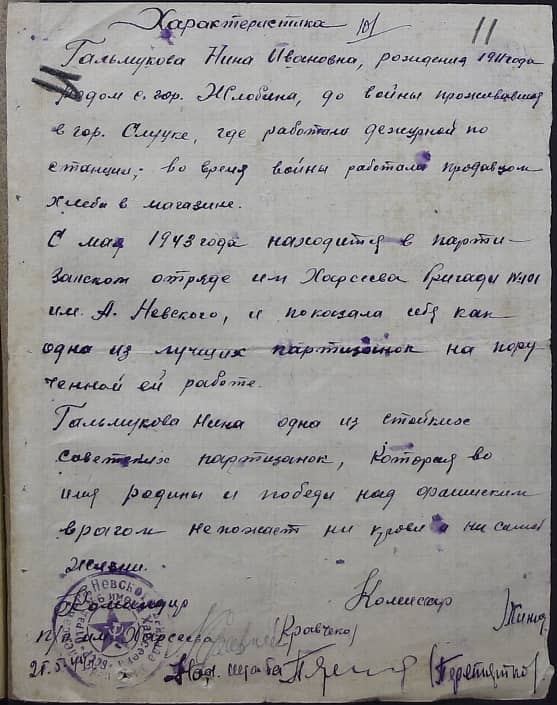 Характеристика 11
Гальмукова Нина Ивановна, рождения 1911 года
родом с. гор. Жлобина, до войны проживавшая
в гор. Слуцке, где работала дежурной по
станции, во время войны работала продавцом
хлеба в магазине.
С мая 1943 года находится в парти-
занском отряде им Харсеева бригады №101
им. А. Невского, и показала себя как
одна из лучших партизанок на пору
ченной ей работе.
Гальмукова Нина одна из стойких
советских партизанок, которая во
имя родины и победы над фашиским
врагом непожает ни крови а ни самой
жизни.
Командир Комиссар
п/о им. Харсеева /Кравченко/
Нач. штаба /Перетятко/